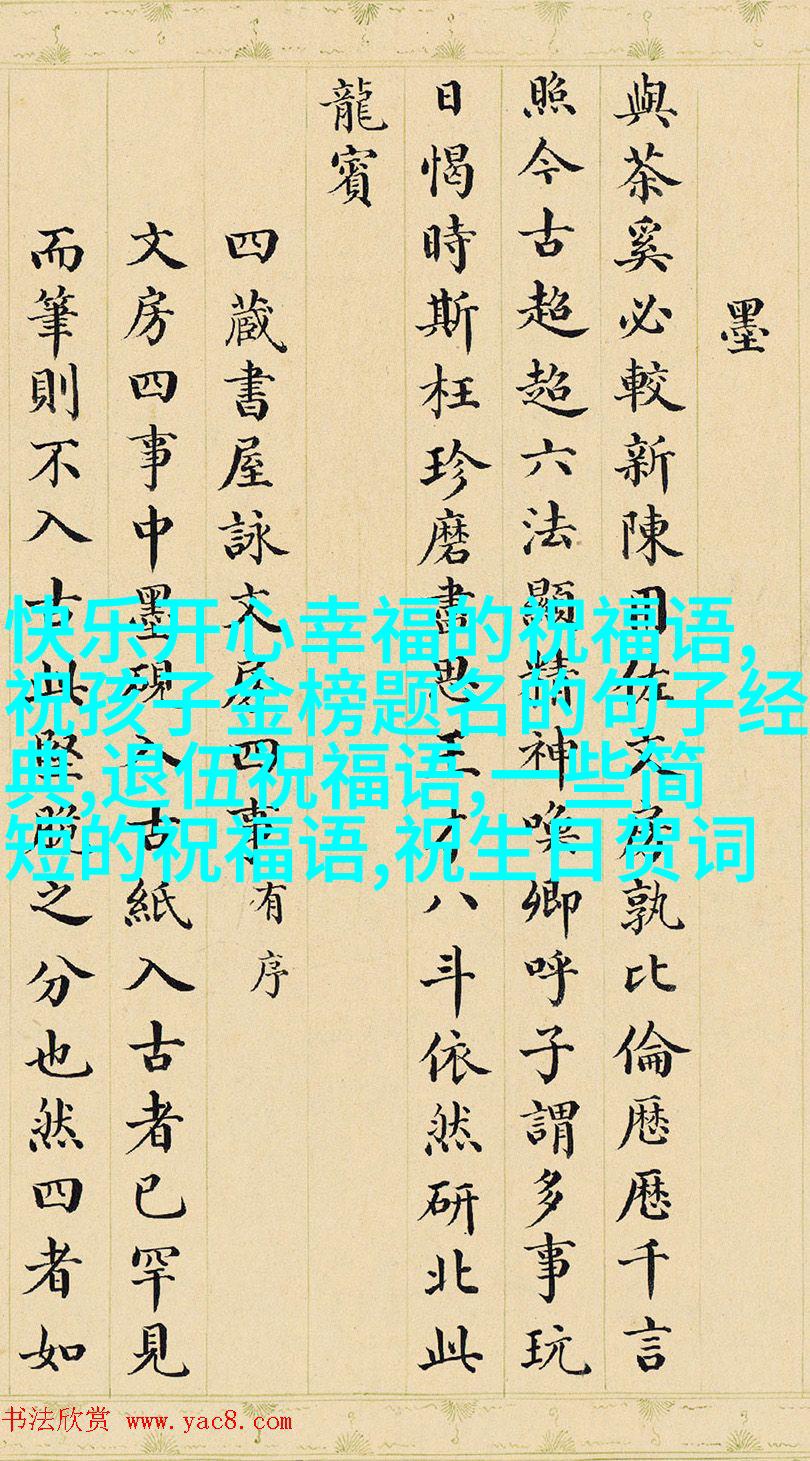 墨
與茶奚必較新陳佐文房孰比倫歷歷千言
照今古超超六法顯精神喚卿呼子謂多事玩
日愒時斯枉珍磨盡思王才八斗依然研北此
龍賓
四蔵書屋詠文房四事有序
文房四事中墨硯入古紙入古者已罕見
而筆則不入古此堅脆之分也然四者如
快乐开心幸福的祝福语,
祝孩子金榜题名的句子经
典,退伍祝福语,一些简
短的祝福语,祝生日贺词
书法欣赏 www.yac8.com